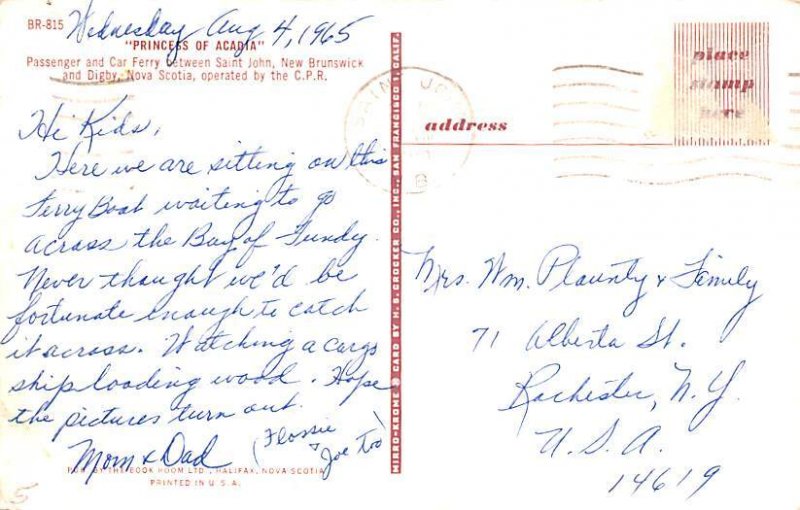 BR-815
Wednesday Aug 4, 1965
"PRINCESS OF ACADIA"
Passenger and Car Ferry between Saint John, New Brunswick
and Digby, Nova Scotia, operated by the C.P.R.
Hi Kids,
Here we are sitting on this
Ferry Boat waiting to go
across the Bay of Fundy.
Never thought we'd be
fortunate enough to catch
it across. Watching a cargo
ship loading wood. Hope
the pictures turn out.
Mom & Dad
(Flossie
& Joe Too)
PUB. BY THE BOOK ROOM LTD., HALIFAX, NOVA SCOTIA
PRINTED IN U.S.A.
5
MIRRO-KROME ® CARD BY H. S. CROCKER CO., INC., SAN FRANCISCO 1, CALIF.
SAINT JOHN
address
place
stamp
here
Mrs. Wm. Plaunty & Family
71 Alberta St.
Rochester, N.Y.
U.S.A.
14619